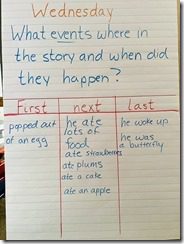 Wednesday
What events where in
the story and when did
they happen?
First next last
popped out
of an egg
he ate
lots of
food
ate strawberries
ate plums
ate a cake
ate an apple
he woke up
he was
a butterfly